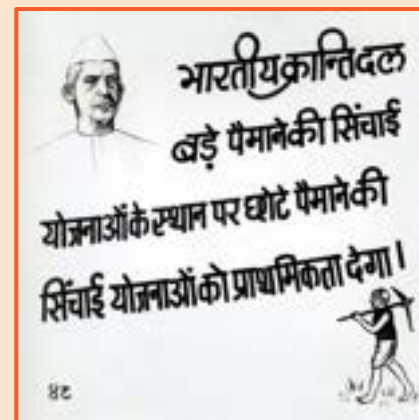 भारतीय क्रान्ति दल
बड़े पैमाने की सिंचाई
योजनाओं के स्थान पर छोटे पैमाने की
सिंचाई योजनाओं को प्राथमिकता देगा।
४८